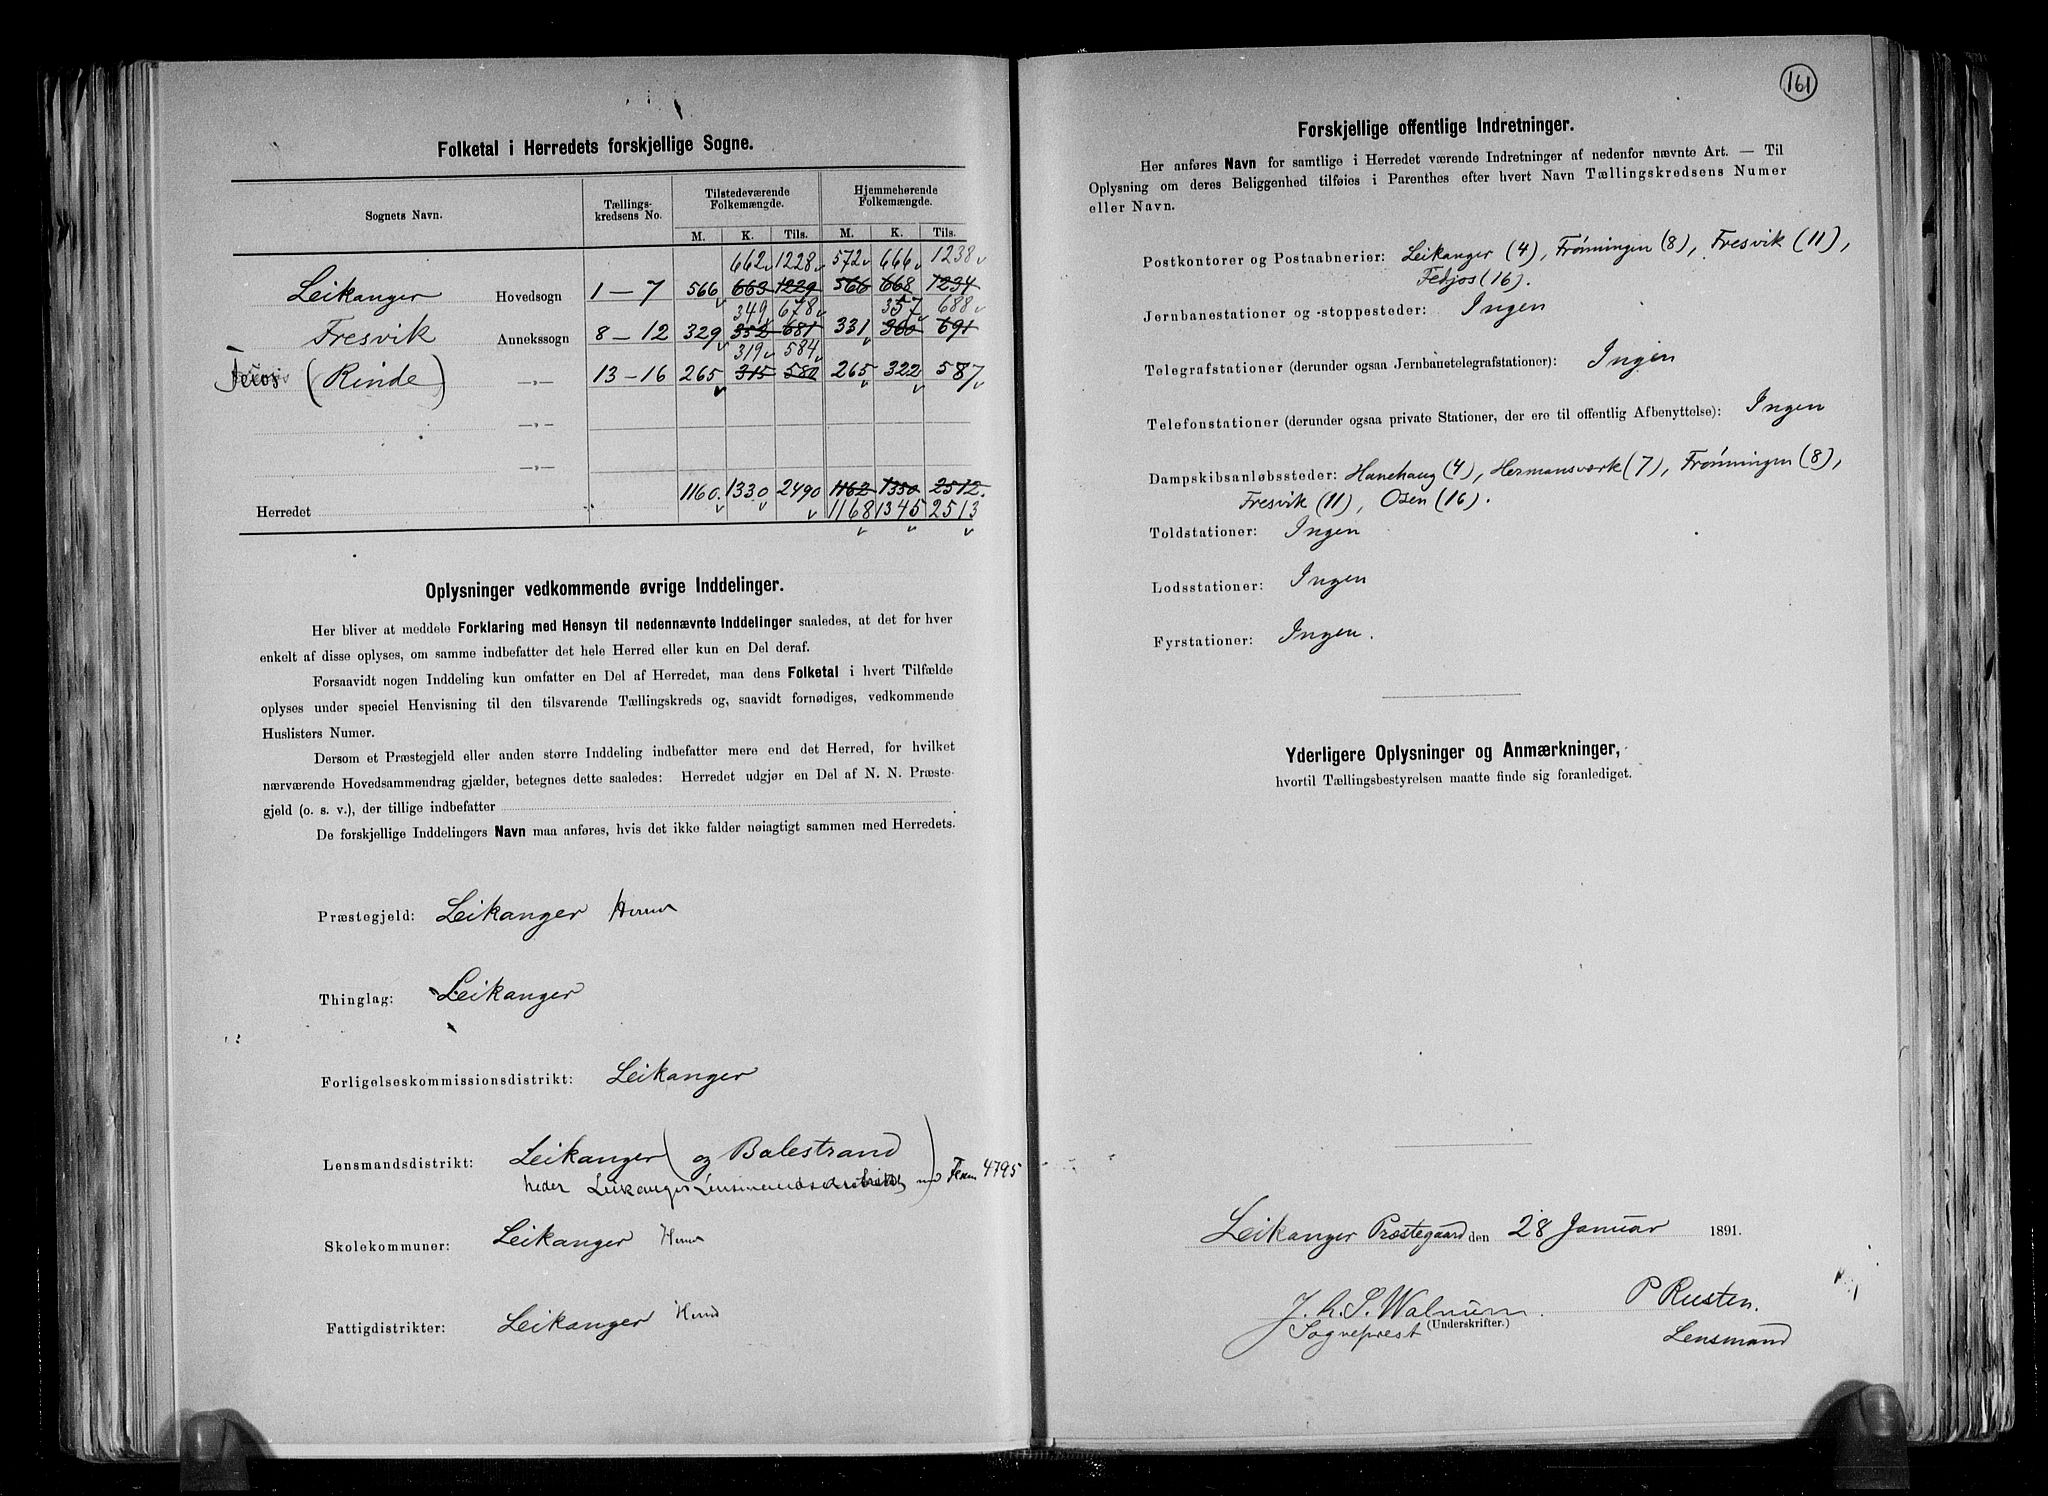 Folketal i Herredets forskjellige Sogne.
Sognets Navn. Tællings-kredsens No. Tilstedeværende Folkemængde. Hjemmehørende Folkemængde.
M. K. Tils. M. K. Tils.
662 1228 572 666 1238
Leikanger Hovedsogn 1 – 7 566 663 1229 566 668 1234
349 678 357 688
Fresvik Annekssogn 8 – 12 329 352 681 331 360 691
319 584
(Rinde) —„— 13 – 16 265 315 580 265 322 587
—„—
—„—
1160 1330 2490 1162 1350 2512.
Herredet 1168 1345 2513
Oplysninger vedkommende øvrige Inddelinger.
Her bliver at meddele Forklaring med Hensyn til nedennævnte Inddelinger saaledes, at det for hver
enkelt af disse oplyses, om samme indbefatter det hele Herred eller kun en Del deraf.
Forsaavidt nogen Inddeling kun omfatter en Del af Herredet, maa dens Folketal i hvert Tilfælde
oplyses under speciel Henvisning til den tilsvarende Tællingskreds og, saavidt fornødiges, vedkommende
Huslisters Numer.
Dersom et Præstegjeld eller anden større Inddeling indbefatter mere end det Herred, for hvilket
nærværende Hovedsammendrag gjælder, betegnes dette saaledes: Herredet udgjør en Del af N. N. Præste-
gjeld (o. s. v.), der tillige indbefatter
De forskjellige Inddelingers Navn maa anføres, hvis det ikke falder nøiagtigt sammen med Herredets.
Præstegjeld: Leikanger
Thinglag: Leikanger
Forligelseskommissionsdistrikt: Leikanger
Lensmandsdistrikt: Leikanger (og Balestrand)
Leikanger Lensmandsdistrikt 4795
Skolekommuner: Leikanger
Fattigdistrikter: Leikanger
161
Forskjellige offentlige Indretninger.
Her anføres Navn for samtlige i Herredet værende Indretninger af nedenfor nævnte Art. — Til
Oplysning om deres Beliggenhed tilføies i Parenthes efter hvert Navn Tællingskredsens Numer
eller Navn.
Postkontorer og Postaabnerier: Leikanger (4), Frønningen (8), Fresvik (11),
Fedjos (16).
Jernbanestationer og -stoppesteder: Ingen
Telegrafstationer (derunder ogsaa Jernbanetelegrafstationer): Ingen
Telefonstationer (derunder ogsaa private Stationer, der ere til offentlig Afbenyttelse): Ingen
Dampskibsanløbssteder: Hanehaug (4), Hermansværk (7), Frønningen (8),
Fresvik (11), Osen (16).
Toldstationer: Ingen
Lodsstationer: Ingen
Fyrstationer: Ingen.
Yderligere Oplysninger og Anmærkninger,
hvortil Tællingsbestyrelsen maatte finde sig foranlediget.
Leikanger Præstegaard den 28 Januar 1891.
J. L. S. Walnum. P Rusten.
(Underskrifter.)
Sogneprest Lensmand